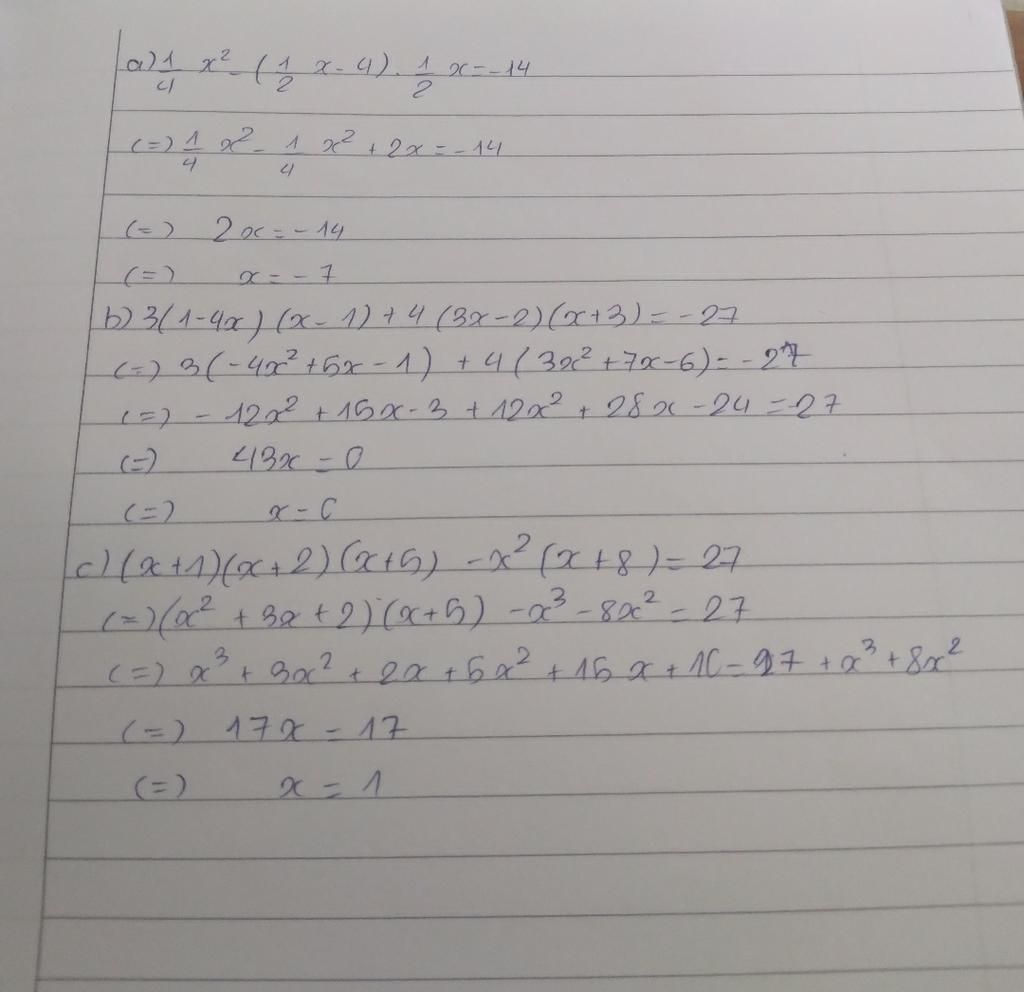 a) 1/4 x² - (1/2 x - 4) . 1/2 x = -14
(=) 1/4 x² - 1/4 x² + 2x = -14
(=) 2x = -14
(=) x = -7
b) 3(1-4x)(x-1) + 4(3x-2)(x+3) = -27
(=) 3(-4x²+5x-1) + 4(3x²+7x-6) = -27
(=) -12x² + 15x - 3 + 12x² + 28x - 24 = -27
(=) 43x = 0
(=) x = 0
c) (x+1)(x+2)(x+5) - x²(x+8) = 27
(=) (x² + 3x + 2)(x+5) - x³ - 8x² = 27
(=) x³ + 3x² + 2x + 5x² + 15x + 10 = 27 + x³ + 8x²
(=) 17x = 17
(=) x = 1